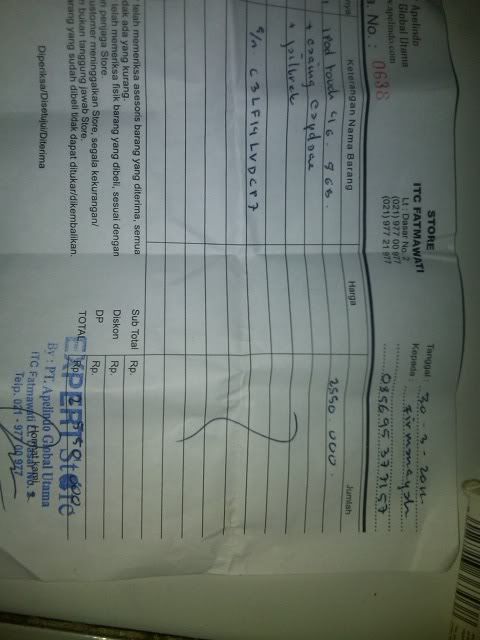 Apelindo
Global Utama
www.apelindo.com
STORE
ITC FATMAWATI
Lt. Dasar No. 2
(021) 977 00 977
(021) 977 21 977
Tanggal : 30 - 3 - 2011
Kepada : Firmansyah
085695373157
a. No. : 0638
nya
Keterangan Nama Barang
Harga
Jumlah
1 ipod touch 4G . 8GB.
2550.000.
+ casing
+
s/n C3LFI4LVDCP7
telah memeriksa asesoris barang yang diterima, semua
dak ada yang kurang.
telah memeriksa fisik barang yang dibeli, sesuai dengan
n penjaga Store.
ustomer meninggalkan Store, segala kekurangan/
n bukan tanggung jawab Store.
arang yang sudah dibeli tidak dapat ditukar/dikembalikan.
Sub Total Rp.
Diskon Rp.
DP Rp.
TOTAL Rp. 2550.000
Diperiksa/Disetujui/Diterima
Hormat kami,
EXPERT Store
By : PT. Apelindo Global Utama
ITC Fatmawati Lt. Dasar No. 2
Telp. 021 - 977 00 977